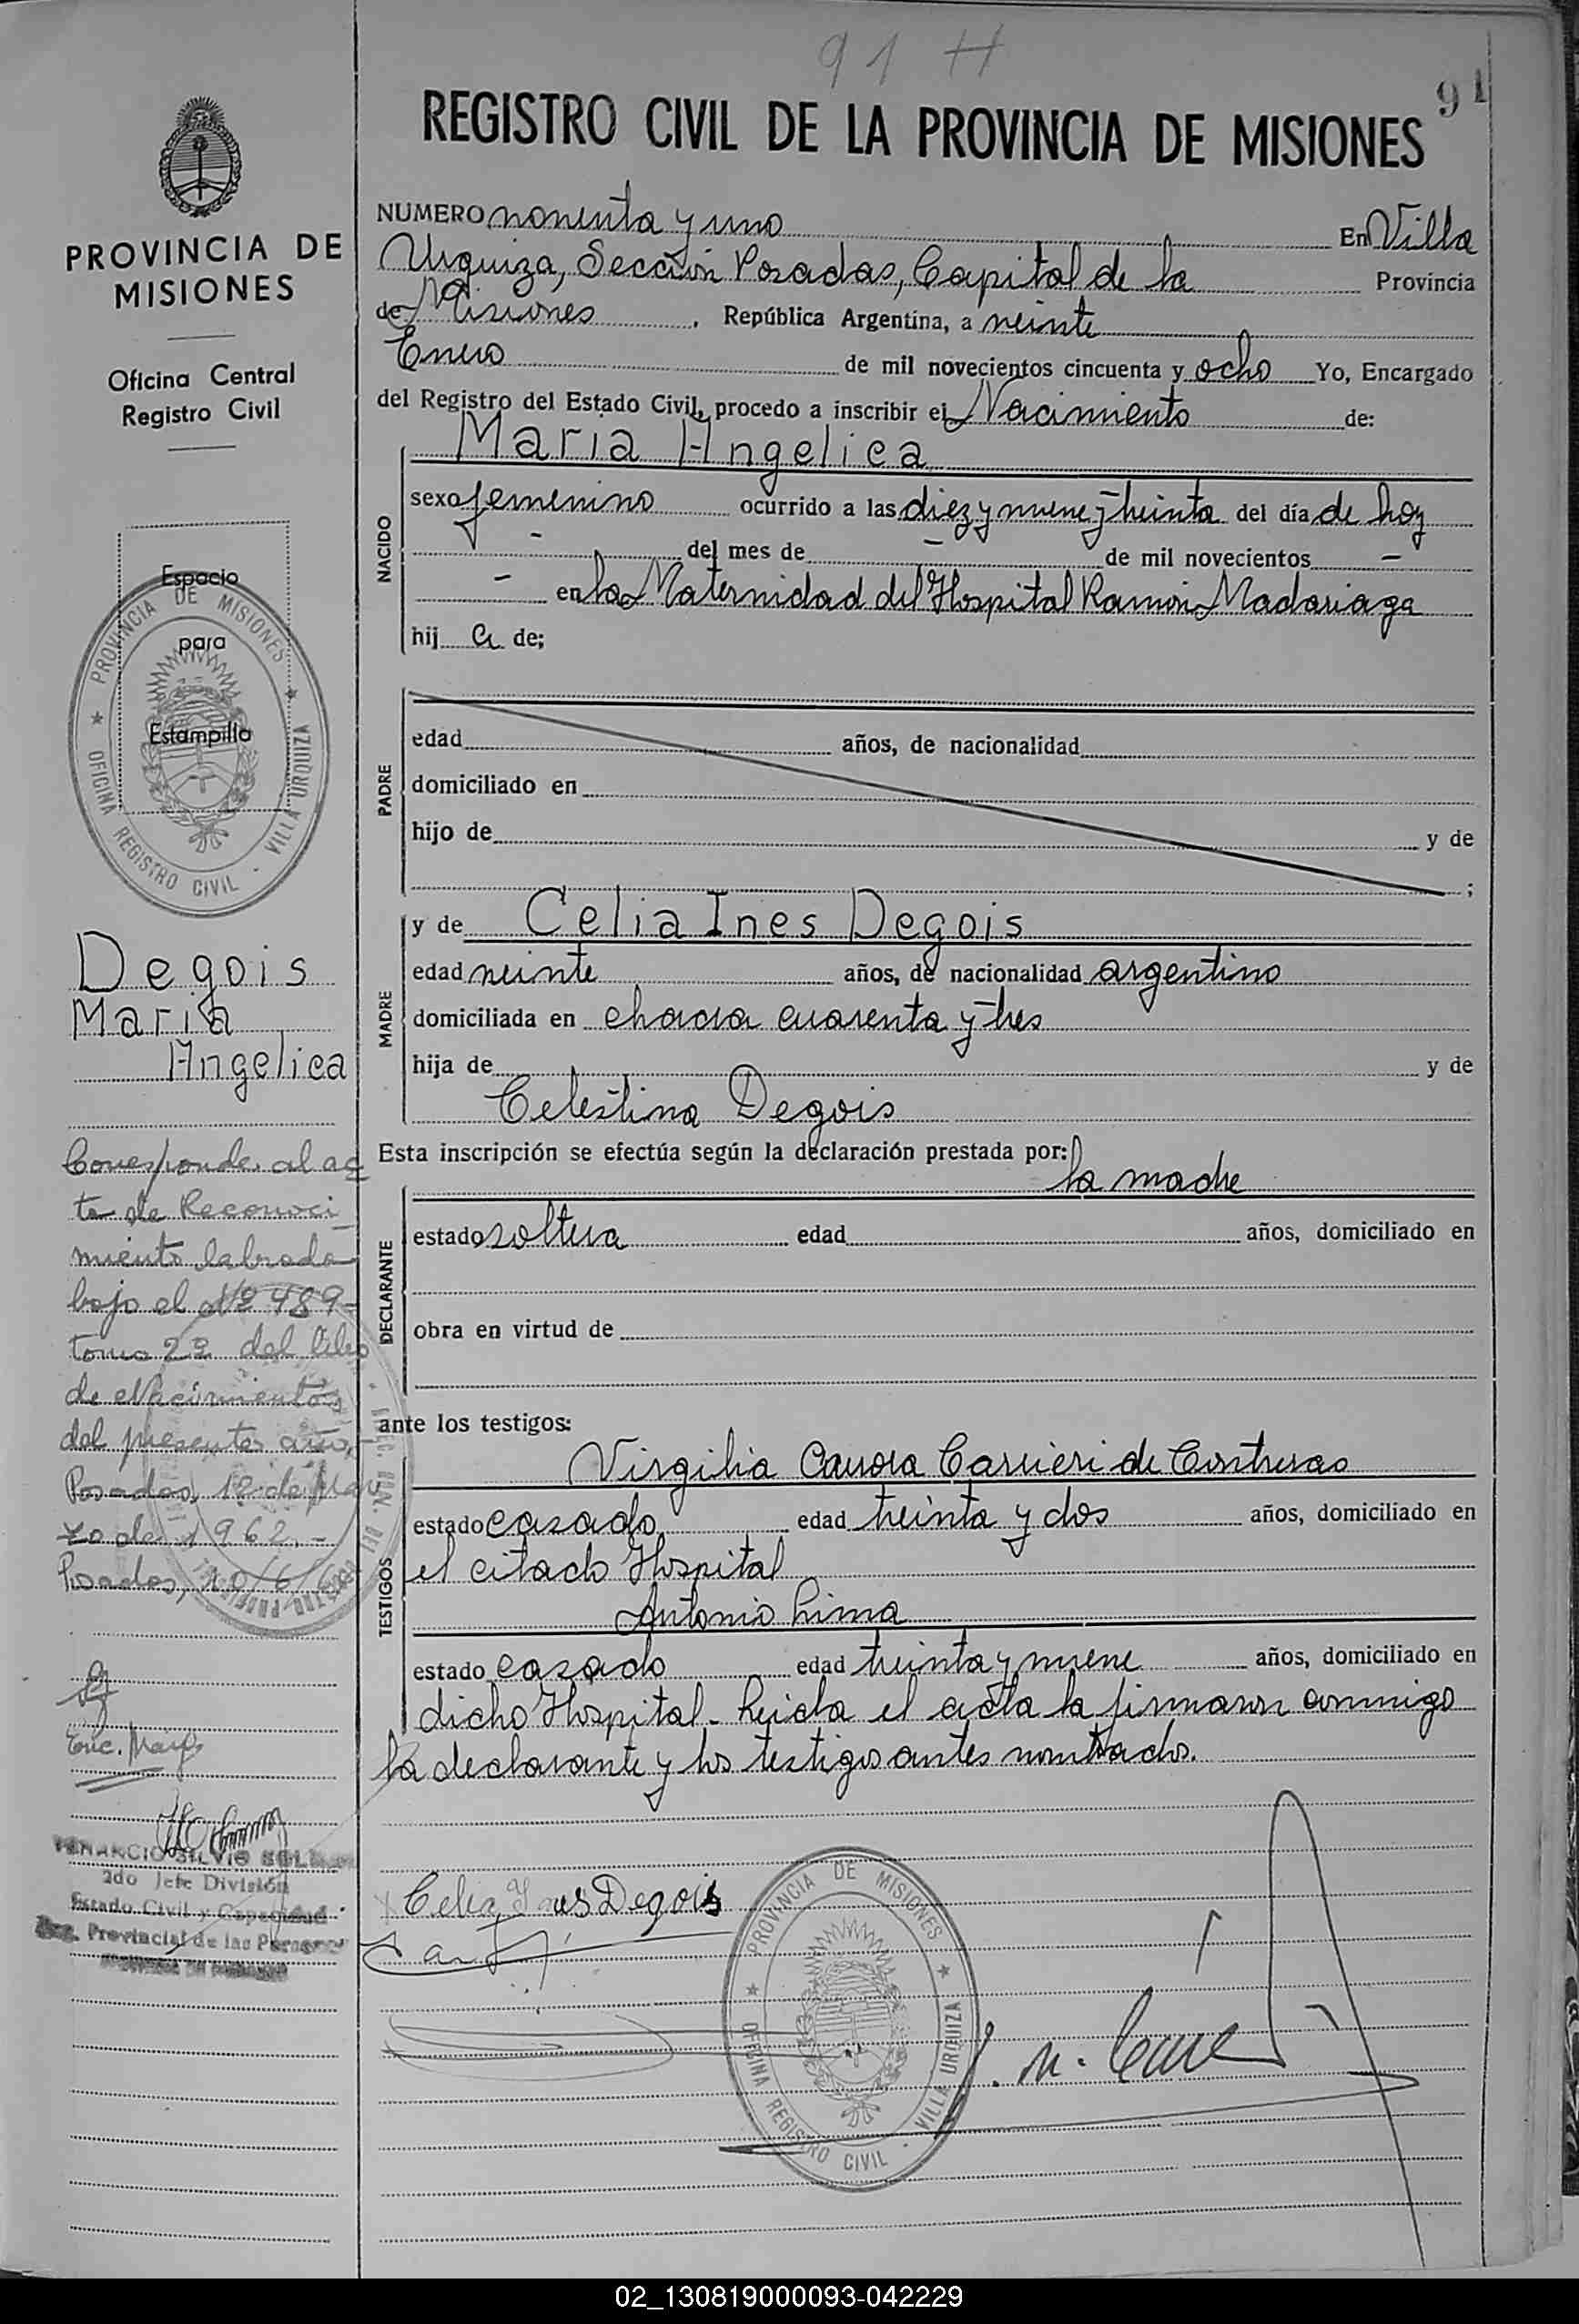 91 H
91
REGISTRO CIVIL DE LA PROVINCIA DE MISIONES
PROVINCIA DE
MISIONES
Oficina Central
Registro Civil
Espacio
para
Estampilla
PROVINCIA DE MISIONES
OFICINA REGISTRO CIVIL - VILLA URQUIZA
Degois
Maria
Angelica
Corresponde al ac
ta de Reconoci
miento labrada
bajo el Nº 489-
tomo 2º del libro
de Nacimientos
del presente año,
Posadas, 12 de Mar
zo de 1962.-
Posadas, 10/6/
Enc. Marg.
VENANCIO SILVIO
2do Jefe División
Estado Civil y Capacidad
Reg. Provincial de las Personas
NUMERO nonenta y uno En Villa
Urquiza, Sección Posadas, Capital de la Provincia
de Misiones, República Argentina, a veinte
Enero de mil novecientos cincuenta y ocho Yo, Encargado
del Registro del Estado Civil, procedo a inscribir el Nacimiento de:
NACIDO
Maria Angelica
sexo femenino ocurrido a las diez y nueve y treinta del día de hoy
- del mes de - de mil novecientos -
- en la Maternidad del Hospital Ramon Madariaga
hij a de;
PADRE
edad años, de nacionalidad
domiciliado en
hijo de y de
;
MADRE
y de Celia Ines Degois
edad veinte años, de nacionalidad argentino
domiciliada en chacra cuarenta y tres
hija de y de
Celestina Degois
Esta inscripción se efectúa según la declaración prestada por:
la madre
DECLARANTE
estado soltera edad años, domiciliado en
obra en virtud de
ante los testigos:
TESTIGOS
Virgilia Carrieri de Contreras
estado casado edad treinta y dos años, domiciliado en
el citado Hospital
Antonio Lima
estado casado edad treinta y nueve años, domiciliado en
dicho Hospital - Leida el acta la firmaron conmigo
la declarante y los testigos antes nombrados.
Celia Ines Degois
PROVINCIA DE MISIONES
OFICINA REGISTRO CIVIL - VILLA URQUIZA
02_130819000093-042229